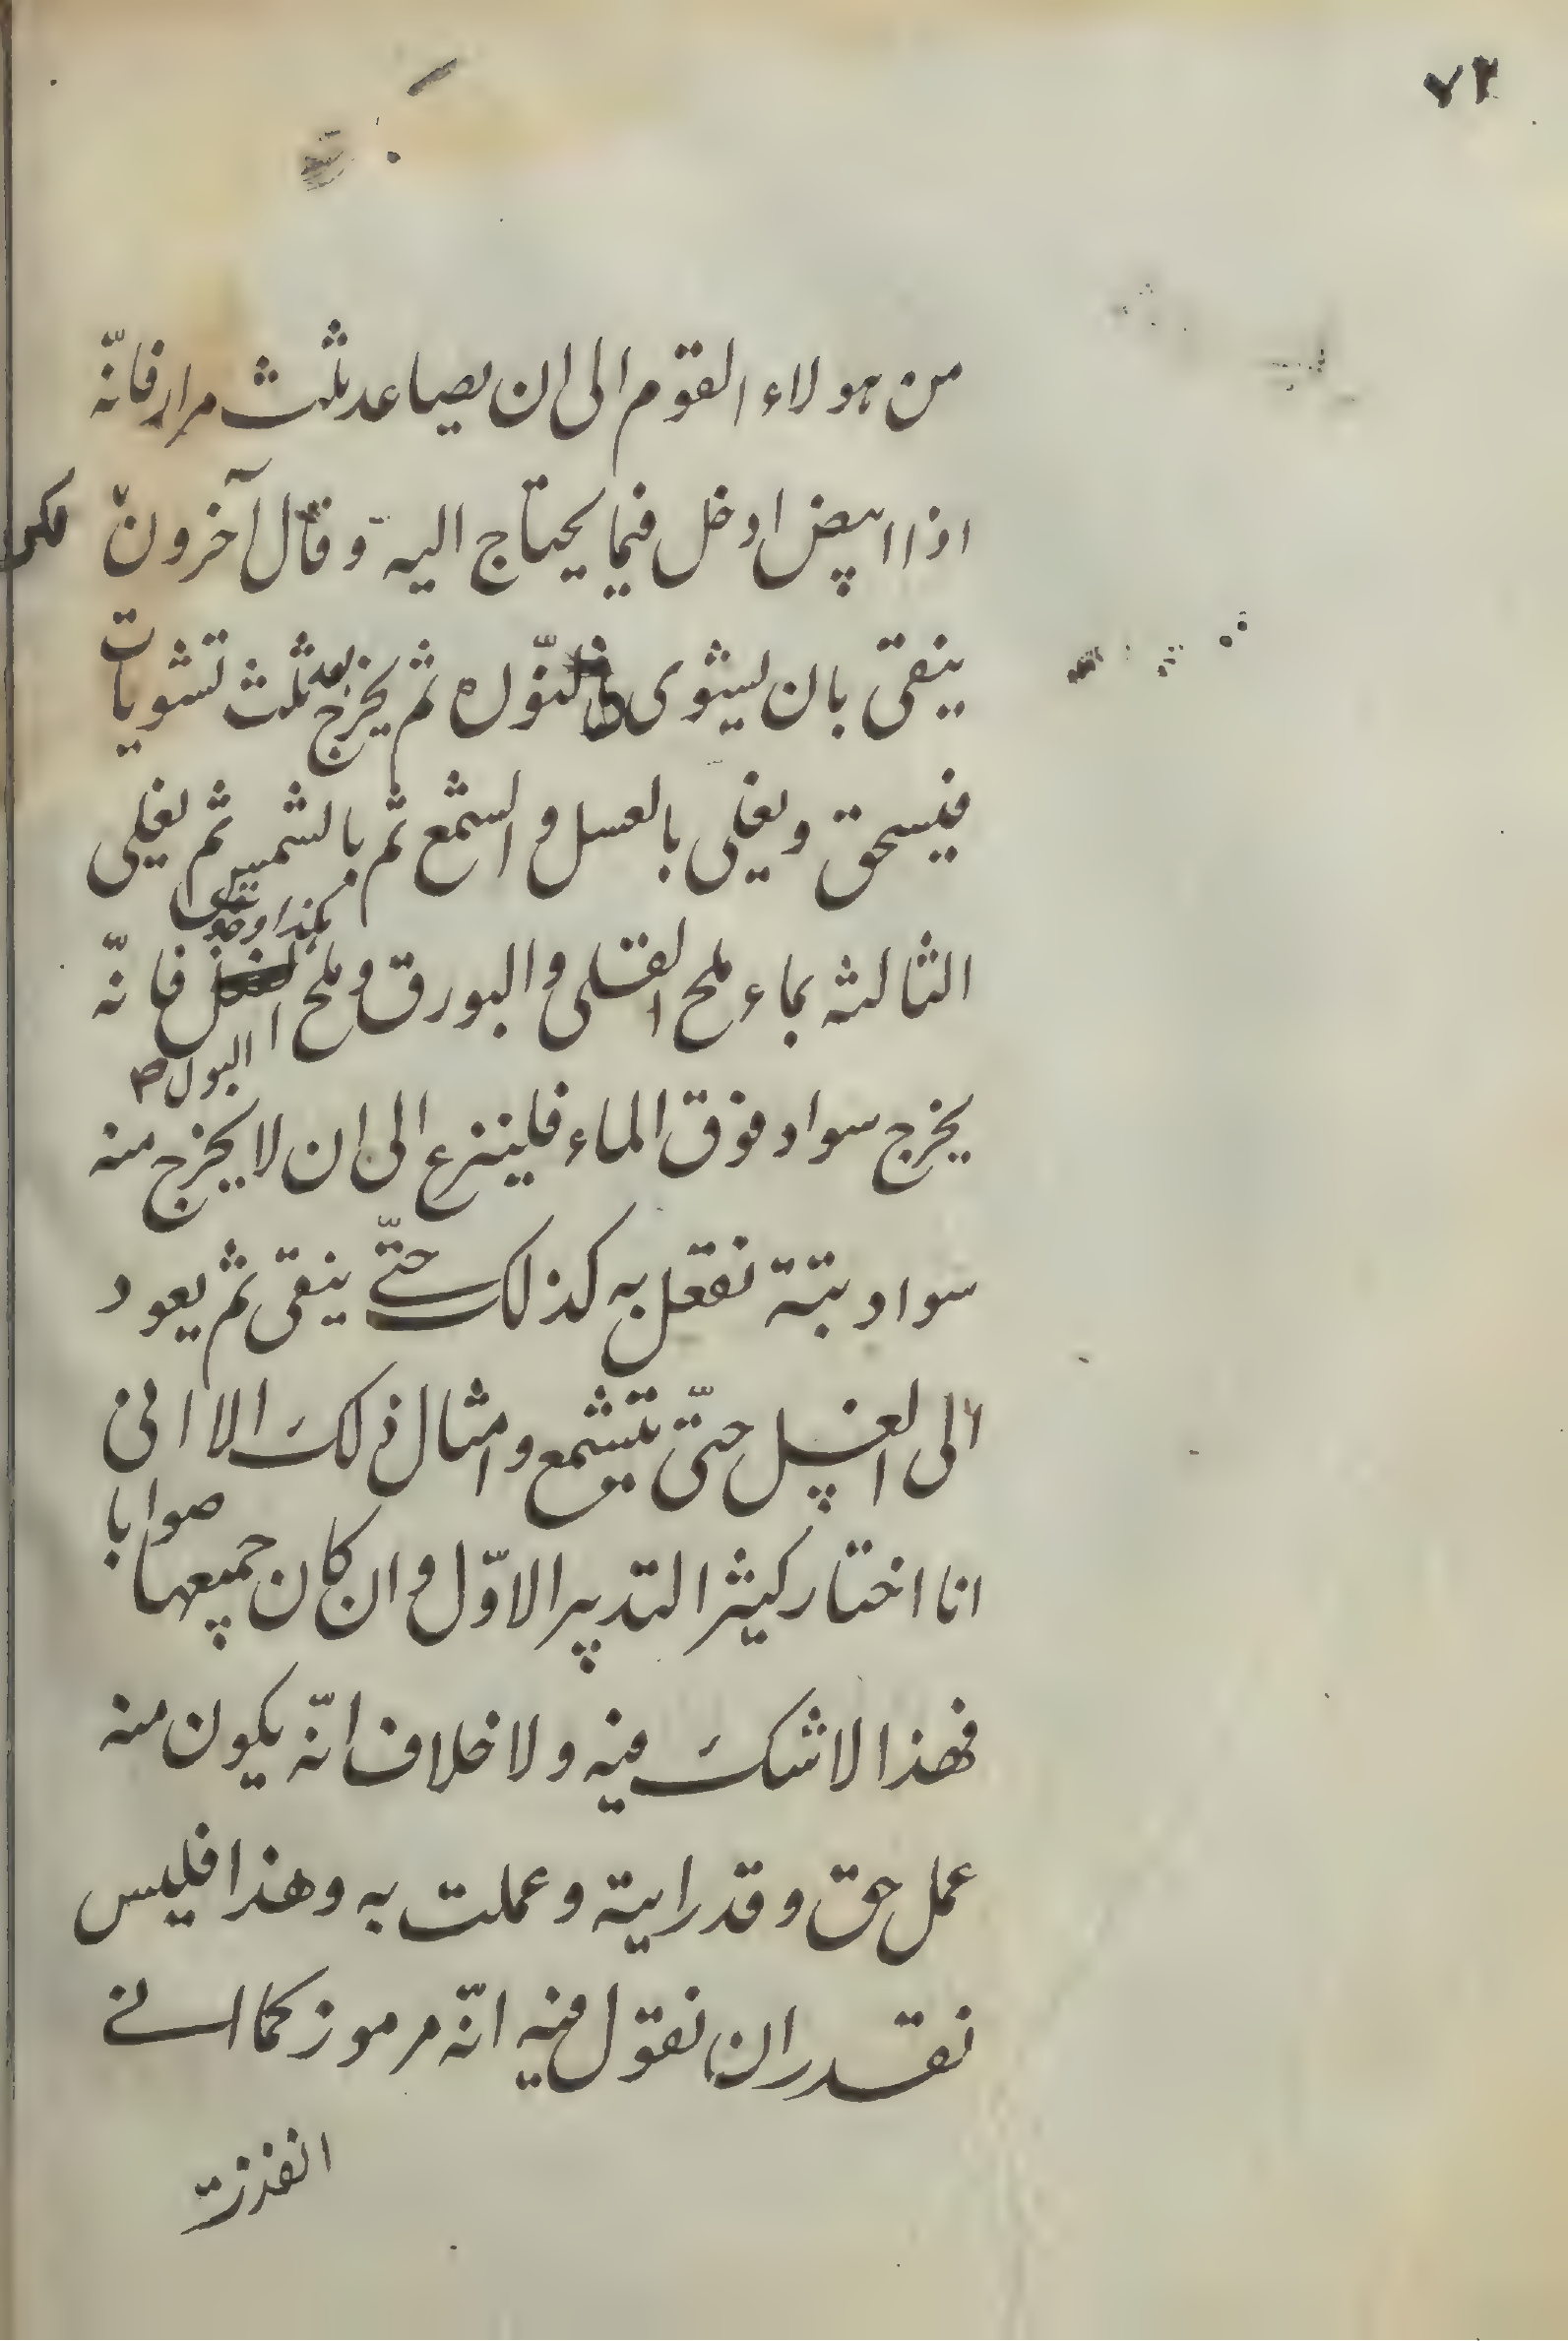 ٧٢
من هولاء القوم الى ان يصاعد ثلث مرار فانّه
اذا ابيض ادخل فيما يحتاج اليه وقال آخرون
ينقى بان يشوى ثم يخرج بعد ثلث تشويات
فيسحق ويغلى بالعسل والشمع ثم بالشمس ثم يغلى
هكذا وجد
الثالثه بماء ملح القلى والبورق وملح فانّه
البول
يخرج سواد فوق الماء فلينزع الى ان لا يخرج منه
سواد بتة نفعل به كذلك حتّى ينقى ثم يعود
الى الغسل حتّى يتشمع وامثال ذلك الا انى
انا اختار كيثر التدبير الاوّل وان كان جميعها صوابا
فهذا لا شك فيه ولا خلاف انّه يكون منه
عمل حق وقد رايته وعملت به وهذا فليس
نقدر ان نقول فيه انّه مرموز كما انى
انفذت